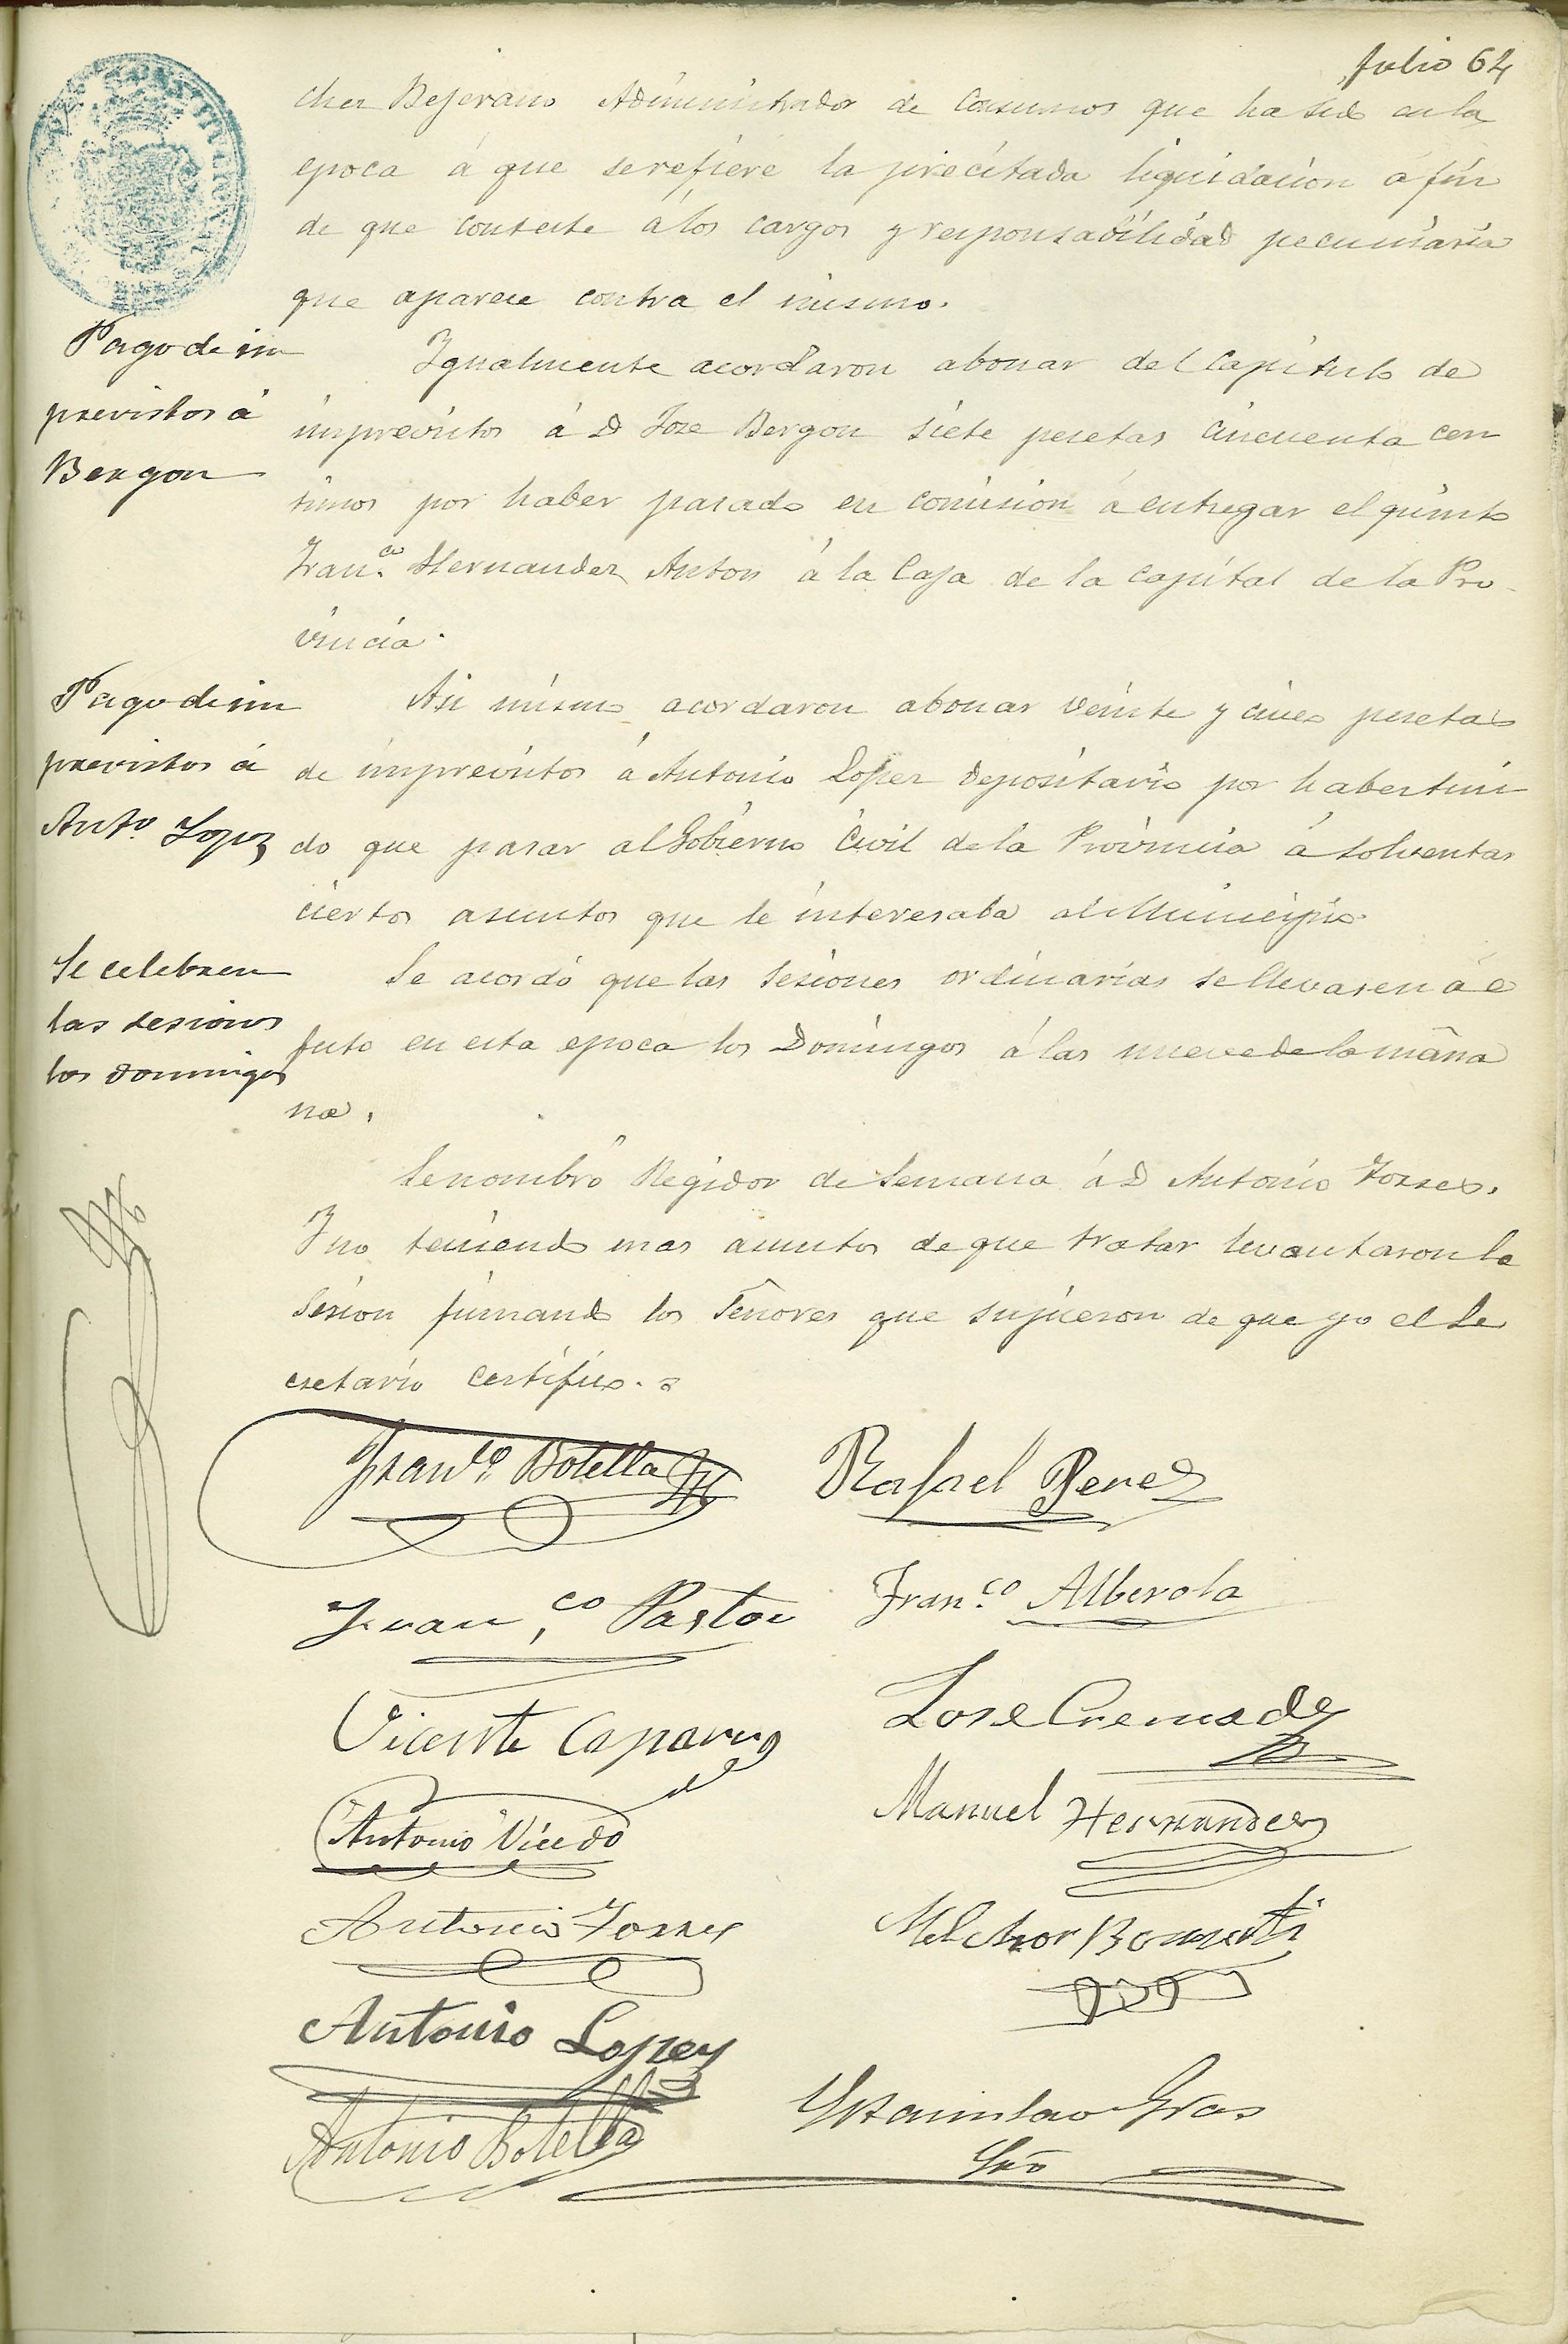 folio 64
chez Bejerano Administrador de Consumos que ha sido en la
epoca á que se refiere la precitada liquidacion á fin
de que conteste á los cargos y responsabilidad pecuniaria
que aparece contra el mismo.
Pago de im
previstos á
Bergon
Igualmente acordaron abonar del Capitulo de
imprevistos á D Jose Bergon siete pesetas cincuenta cen
timos por haber pasado en comision á entregar el quinto
Fran.co Hernandez Anton á la Caja de la Capital de la Pro-
vincia.
Pago de im
previstos á
Anto. Lopez
Asi mismo acordaron abonar veinte y cinco pesetas
de imprevistos á Antonio Lopez depositario por haber teni
do que pasar al Gobierno Civil de la Provincia á solventar
ciertos asuntos que le interesaba al Municipio.
Se celebren
las sesiones
los domingos
Se acordó que las sesiones ordinarias se llevasen á e
fecto en esta epoca los Domingos á las nueve de la maña
na.
Se nombró Regidor de Semana á D Antonio Torres.
Y no teniendo mas asuntos de que tratar levantaron la
Sesion firmando los Señores que supieron de que yo el Se
cretario Certifico.=
Franco. Botella
Rafael Perez
Fran,co Pastor
Fran.co Alberola
Vicente Caparros
Jose Cremades
Antonio Vicedo
Manuel Hernandez
Antonio Torres
Melchor
Antonio Lopez
Antonio Botella
Estanislao Gras
Srio